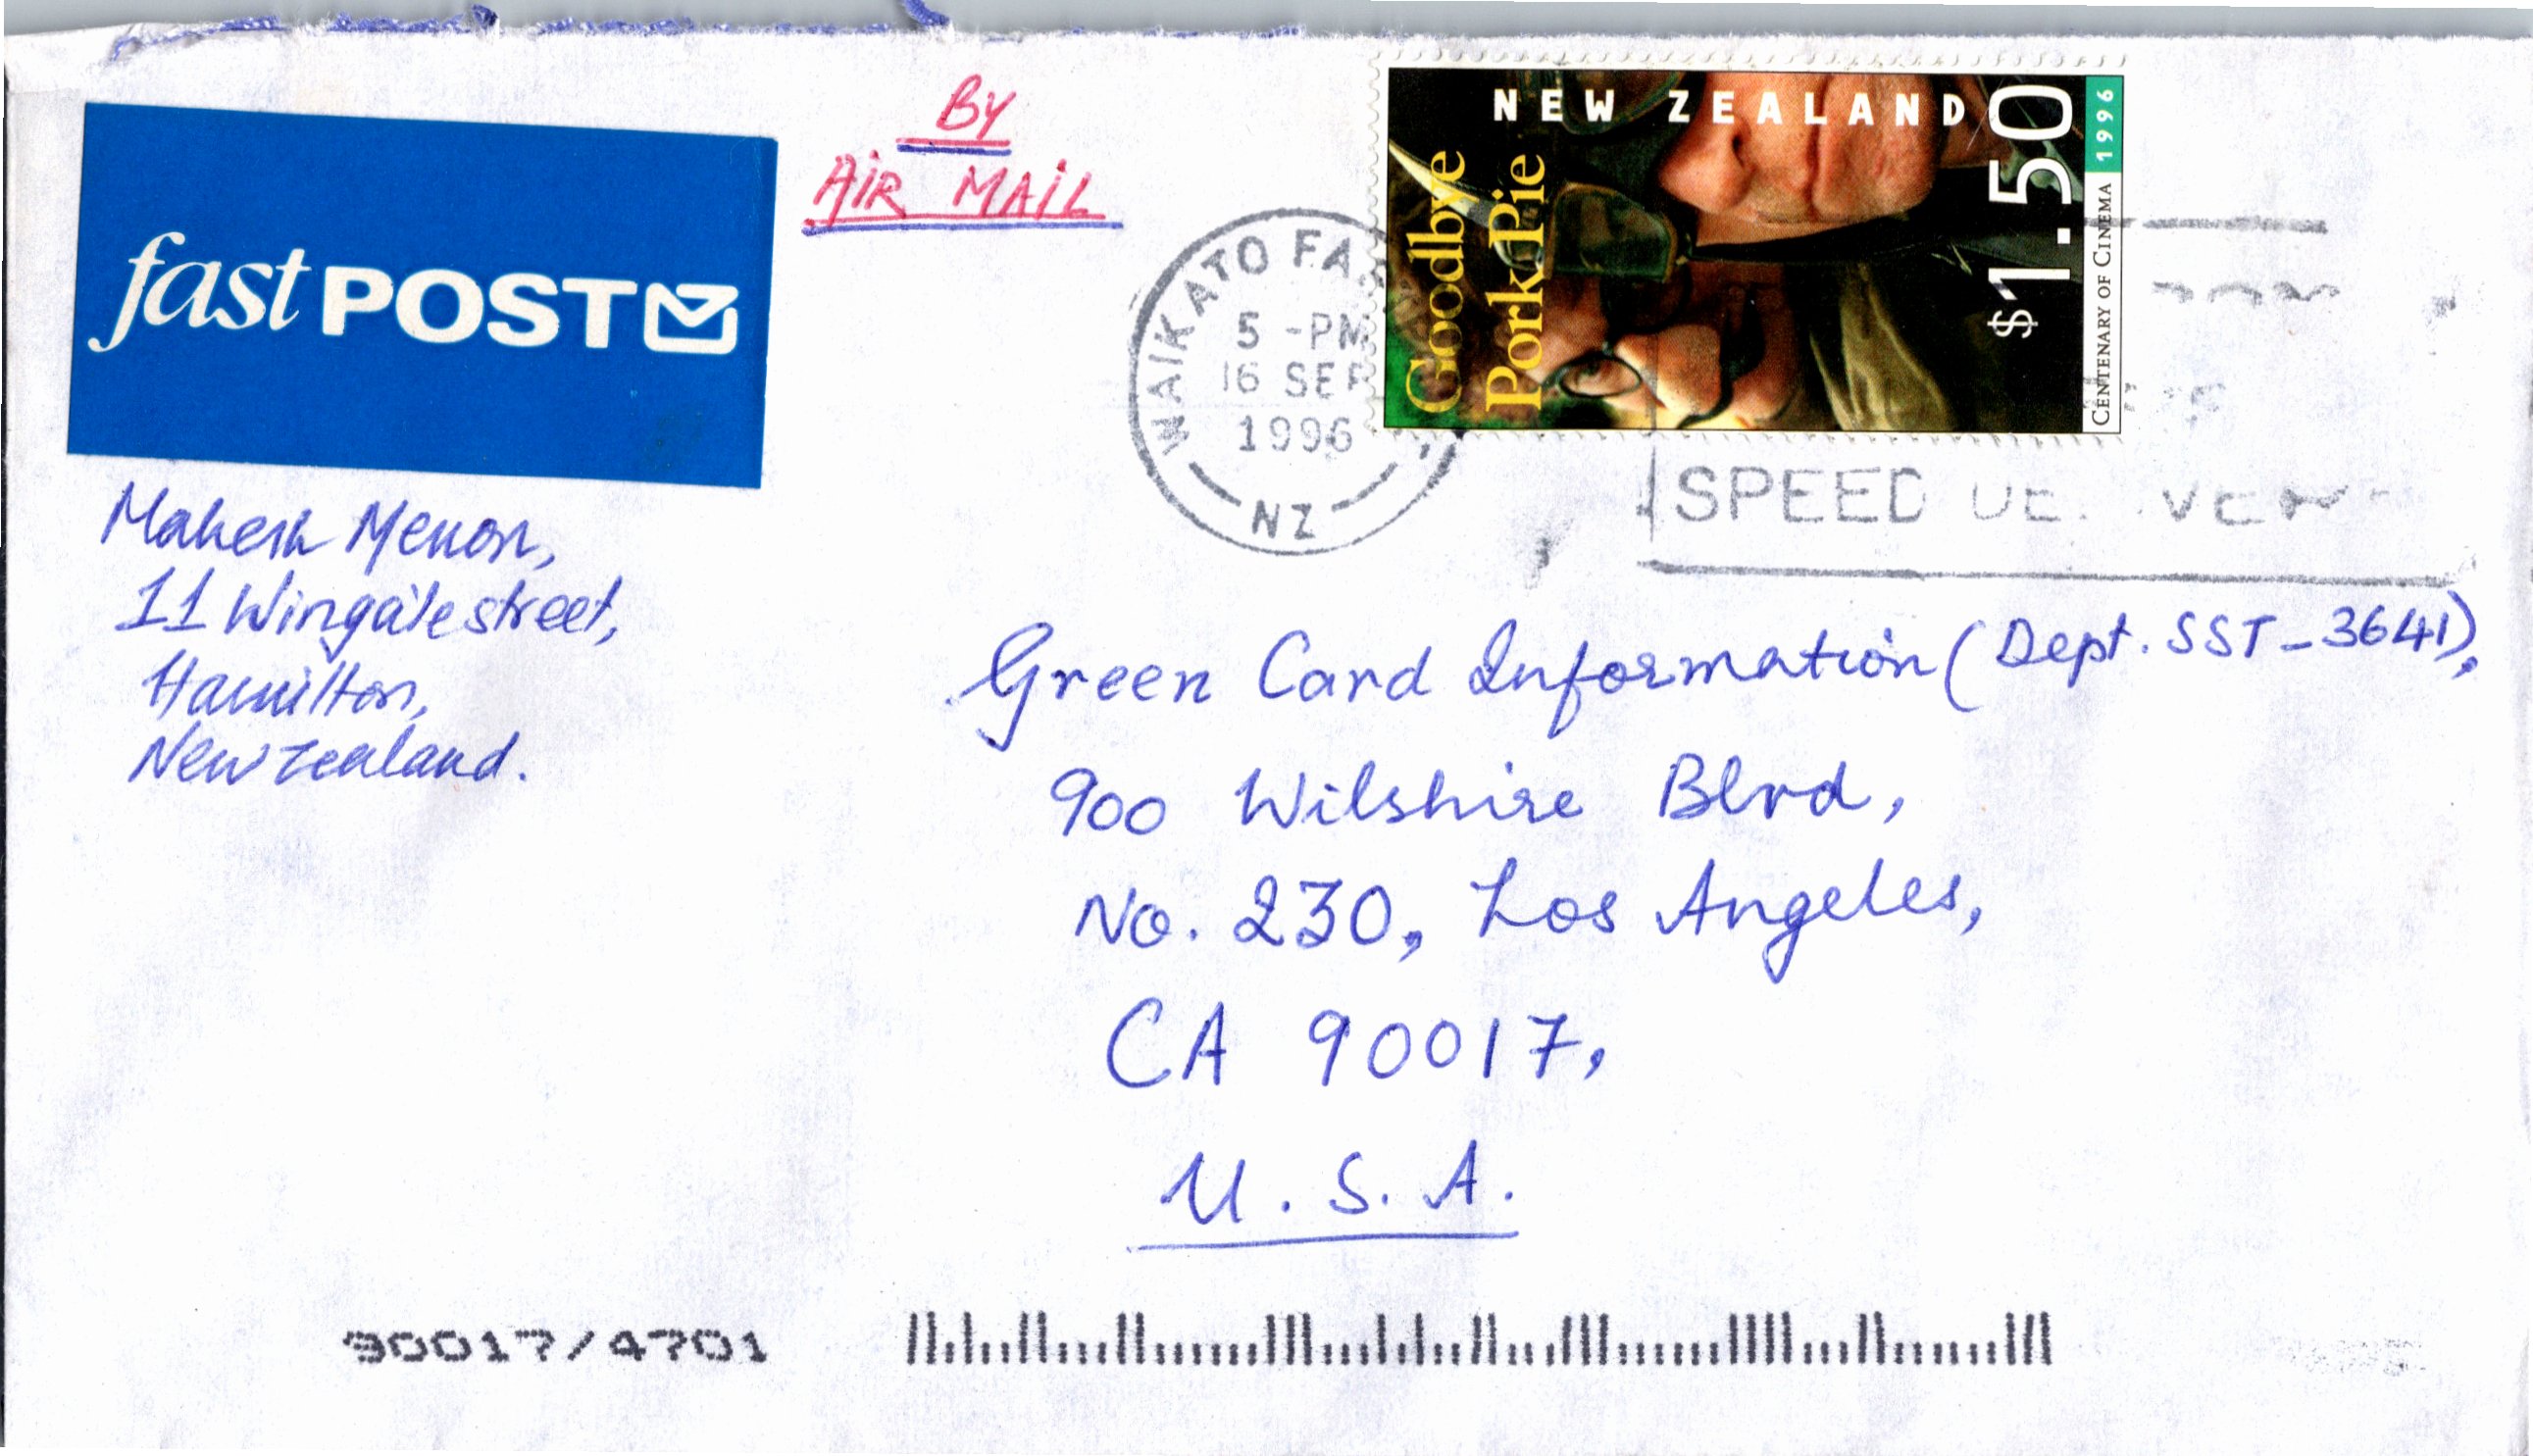 By
AiR MAiL
fast POST
NEW ZEALAND
Goodbye
Pork Pie
$1.50
CENTENARY OF CINEMA 1996
WAIKATO
5 -PM
16 SEP
1996
NZ
SPEED
Mahesh Menon,
11 Wingate street,
Hamilton,
New zealand.
Green Card Information (Dept. SST-3641),
900 Wilshire Blvd,
No. 230, Los Angeles,
CA 90017,
U.S.A.
90017/4701